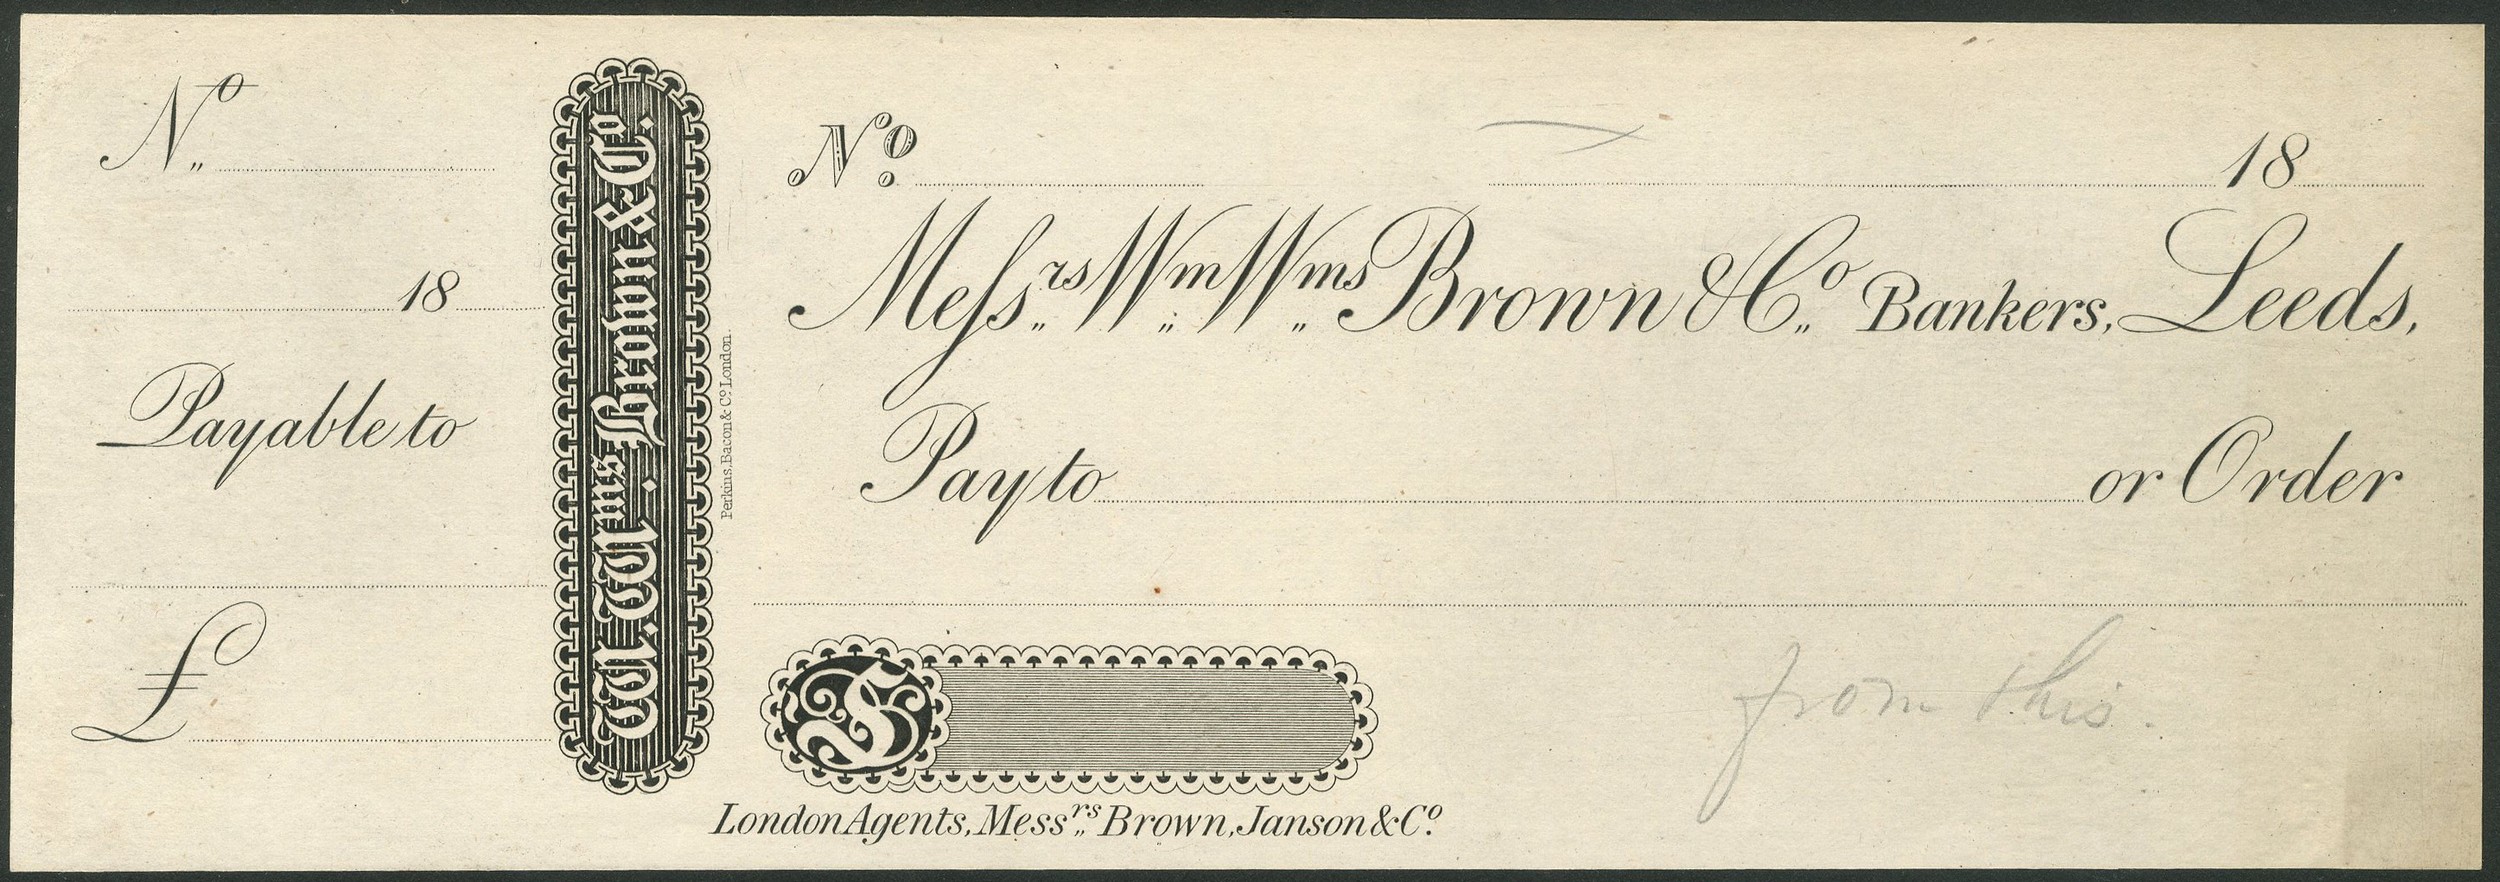 No
18
Payable to
£
W. Wms. Brown & Co.
Perkins, Bacon & Co. London.
No.
18
Messrs Wm Wms Brown & Co Bankers, Leeds,
Pay to or Order
from this.
£
London Agents, Messrs Brown, Janson & Co.